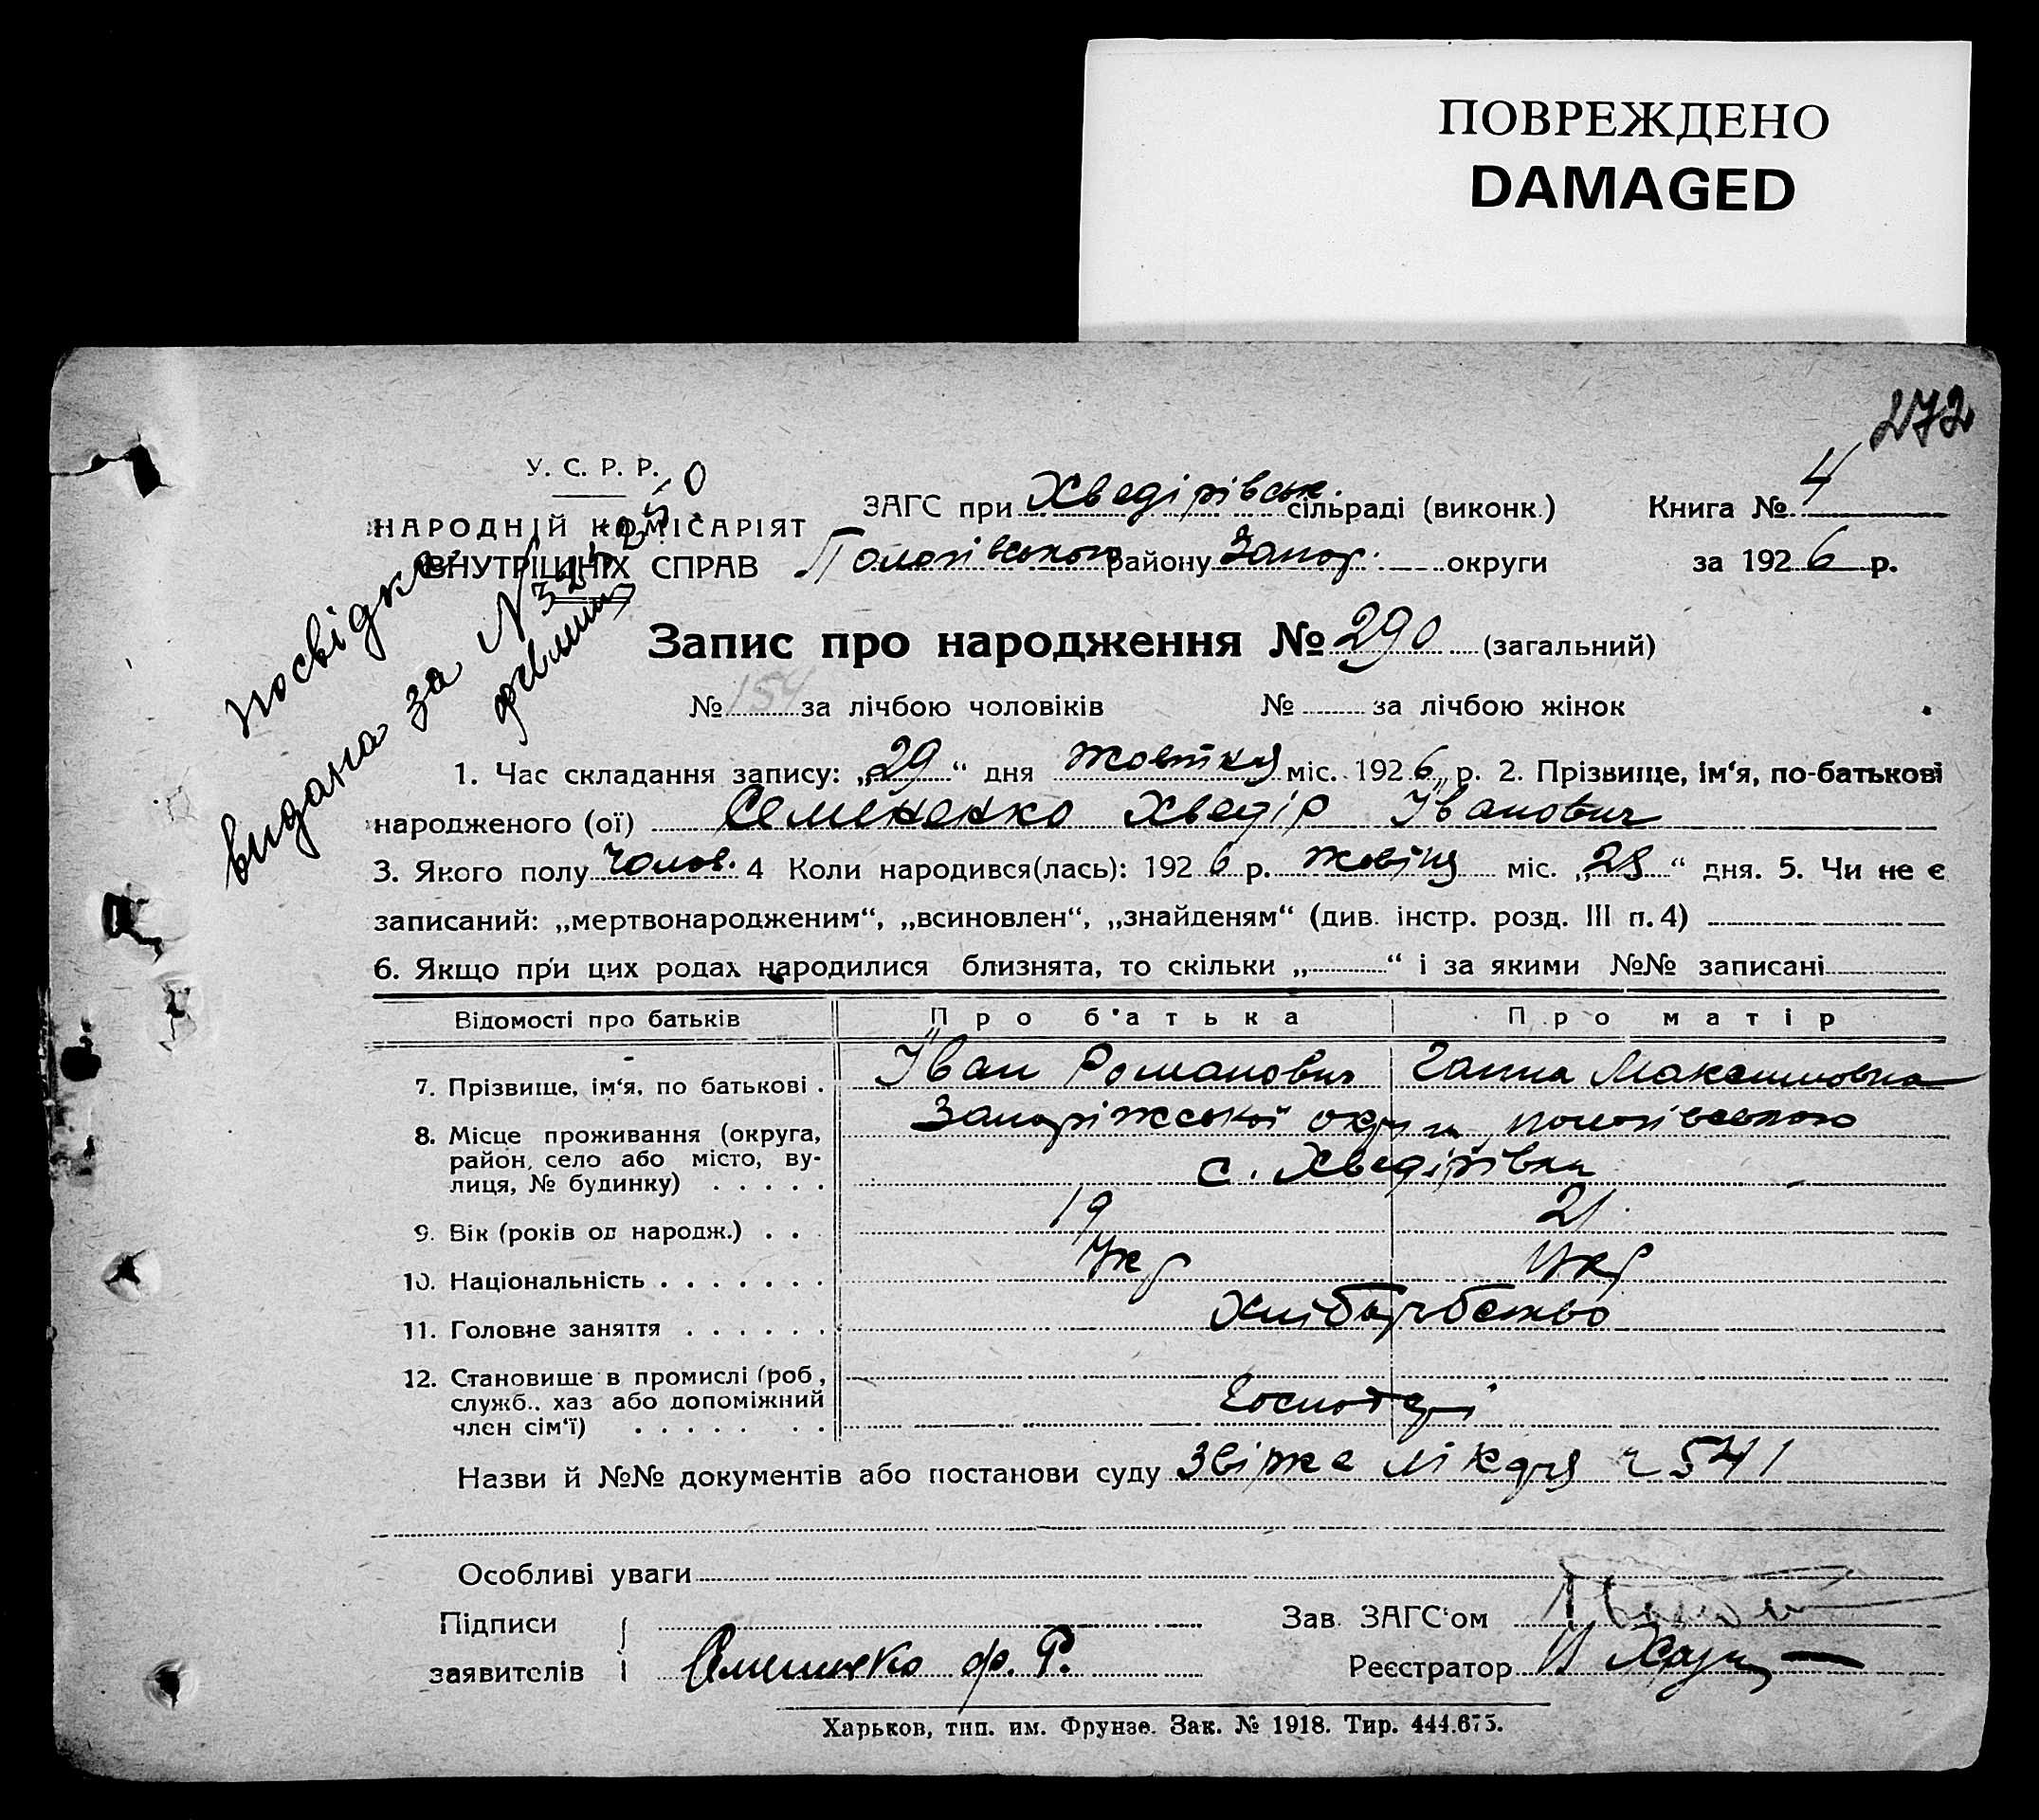 ПОВРЕЖДЕНО
DAMAGED
272
У. С. Р. Р.
НАРОДНІЙ КОМІСАРІЯТ
ВНУТРІШНІХ СПРАВ
ЗАГС при Хведірівськ. сільраді (виконк.)
Книга № 4
Пологівського району Запор. округи
за 1926 р.
посвідка
видана за №
Запис про народження № 290 (загальний)
№ 154 за лічбою чоловіків № за лічбою жінок
1. Час складання запису: „29“ дня жовтня міс. 1926 р. 2. Прізвище, ім‘я, по-батькові
народженого (ої) Семененко Хведір Іванович
3. Якого полу чолов. 4 Коли народився(лась): 1926 р. жовтня міс. „28“ дня. 5. Чи не є
записаний: „мертвонародженим“, „всиновлен“, „знайденям“ (див. інстр. розд. III п. 4)
6. Якщо при цих родах народилися близнята, то скільки „ “ і за якими №№ записані
Відомості про батьків Про б‘атька Про матір
7. Прізвище, ім‘я, по батькові . Іван Романович Ганна Максимовна
8. Місце проживання (округа, Запоріжської округи пологівського
район, село або місто, ву-
лиця, № будинку) . . . . . с. Хведірівки
9. Вік (років од народж.) . . . 19 21
10. Національність . . . . . . . Укр Укр
11. Головне заняття . . . . . . Хліборобство
12. Становище в промислі (роб,
служб., хаз або допоміжний Господарі
член сім‘ї) . . . . . . .
Назви й №№ документів або постанови суду лікаря ч 541
Особливі уваги
Підписи Зав. ЗАГС‘ом
заявителів Семененко Ф. Р. Реєстратор
Харьков, тип. им. Фрунзе. Зак. № 1918. Тир. 444.675.